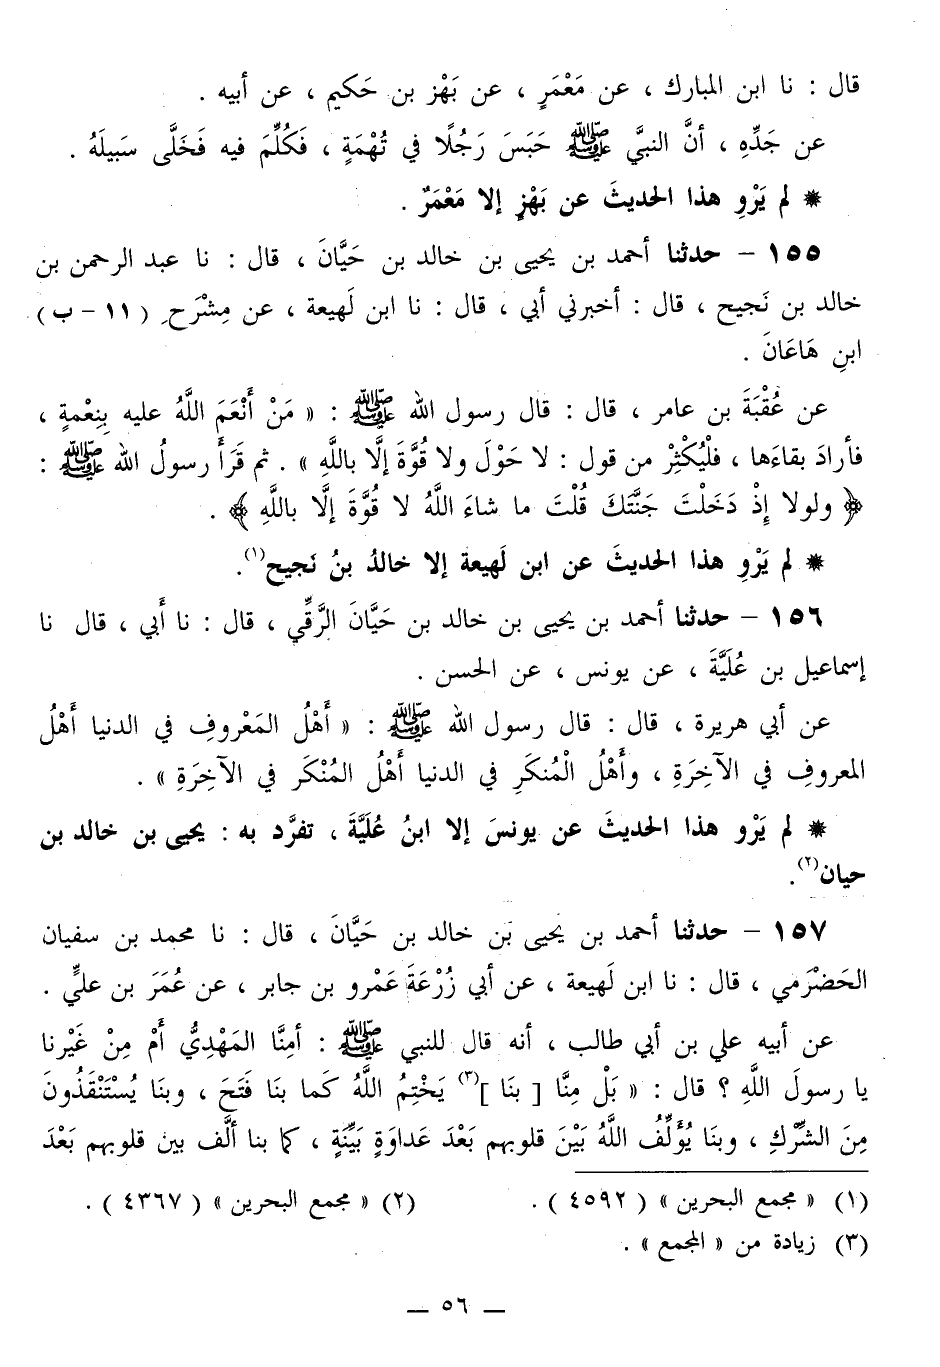 قال : نا ابن المبارك ، عن مَعْمَرٍ ، عن بَهْز بن حَكيم ، عن أبيه .
عن جَدِّهِ ، أنَّ النبيَّ ﷺ حَبَسَ رَجُلًا في تُهْمَةٍ ، فَكُلِّمَ فيه فَخَلَّى سَبيلَهُ .
* لم يَرْوِ هذا الحديثَ عن بَهْزٍ إلا مَعْمَرٌ .
١٥٥ – حدثنا أحمد بن يحيى بن خالد بن حَيَّانَ ، قال : نا عبد الرحمن بن
خالد بن نَجيح ، قال : أخبرني أبي ، قال : نا ابن لَهيعة ، عن مِشْرَح ( ١١ – ب )
ابنِ هَاعَانَ .
عن عُقْبَةَ بن عامر ، قال : قال رسول الله ﷺ : « مَنْ أَنْعَمَ اللَّهُ عليه بِنِعْمةٍ ،
فأرادَ بقاءَها ، فلْيُكْثِرْ من قول : لا حَوْلَ ولا قُوَّةَ إلَّا باللَّهِ » . ثم قَرَأَ رسولُ الله ﷺ :
﴿ ولولا إذْ دَخَلْتَ جَنَّتَكَ قُلْتَ ما شاءَ اللَّهُ لا قُوَّةَ إلَّا باللَّهِ ﴾ .
* لم يَرْوِ هذا الحديثَ عن ابن لَهيعة إلا خالدُ بنُ نَجيح(١).
١٥٦ – حدثنا أحمد بن يحيى بن خالد بن حَيَّانَ الرَّقِّي ، قال : نا أَبي ، قال نا
إسماعيل بن عُلَيَّةَ ، عن يونس ، عن الحسن .
عن أبي هريرة ، قال : قال رسول الله ﷺ : « أَهْلُ المَعْروفِ في الدنيا أَهْلُ
المعروفِ في الآخِرَةِ ، وأَهْلُ الْمُنكَرِ في الدنيا أَهْلُ المُنْكَر في الآخِرَةِ » .
* لم يَرْوِ هذا الحديثَ عن يونسَ إلا ابنُ عُلَيَّةَ ، تفرَّد به : يحيى بن خالد بن
حيان(٢).
١٥٧ – حدثنا أحمد بن يحيى بن خالد بن حَيَّانَ ، قال : نا محمد بن سفيان
الحَضْرَمي ، قال : نا ابن لَهيعة ، عن أبي زُرْعَةَ عَمْرو بن جابر ، عن عُمَرَ بن عليٍّ .
عن أبيه علي بن أبي طالب ، أنه قال للنبي ﷺ : أمِنَّا المَهْدِيُّ أَمْ مِنْ غَيْرنا
يا رسولَ اللَّهِ ؟ قال : « بَلْ مِنَّا [ بنَا ](٣) يَخْتِمُ اللَّهُ كَما بنَا فَتَحَ ، وبنَا يُسْتَنْقَذُونَ
مِنَ الشِّرْكِ ، وبنَا يُؤَلِّفُ اللَّهُ بَيْنَ قلوبهم بَعْدَ عَداوَةٍ بَيِّنَةٍ ، كما بنا ألَّف بين قلوبهم بَعْدَ
(١) « مجمع البحرين » ( ٤٥٩٢ ) . (٢) « مجمع البحرين » ( ٤٣٦٧ ) .
(٣) زيادة من « المجمع » .
— ٥٦ —